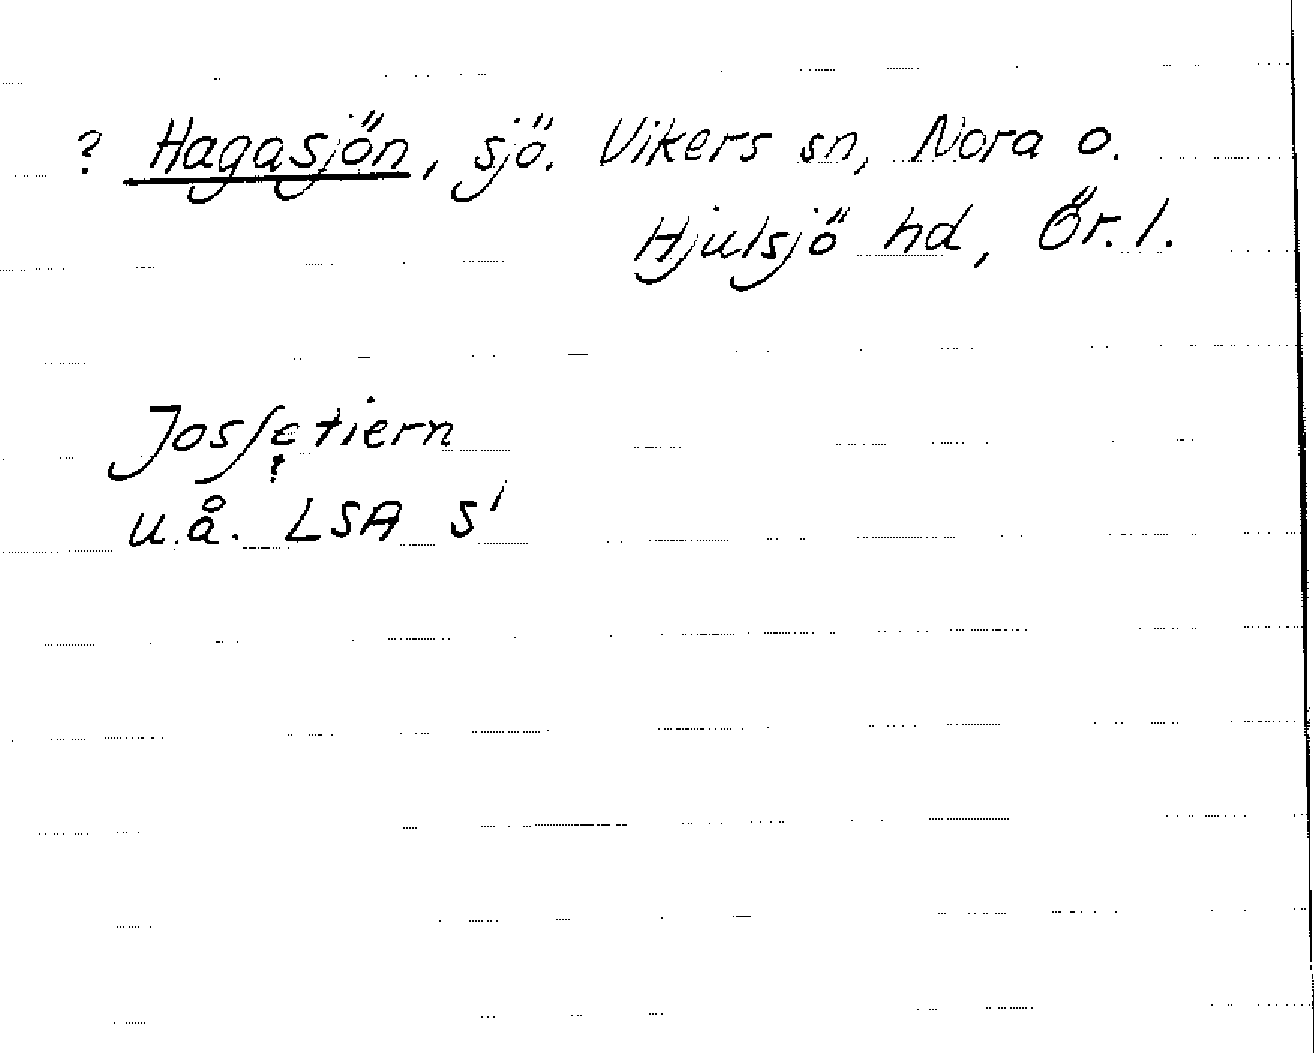 ? Hagasjön, sjö. Vikers sn, Nora o.
Hjulsjö hd, Ör. l.
Josſetiern
?
u.å. LSA S1